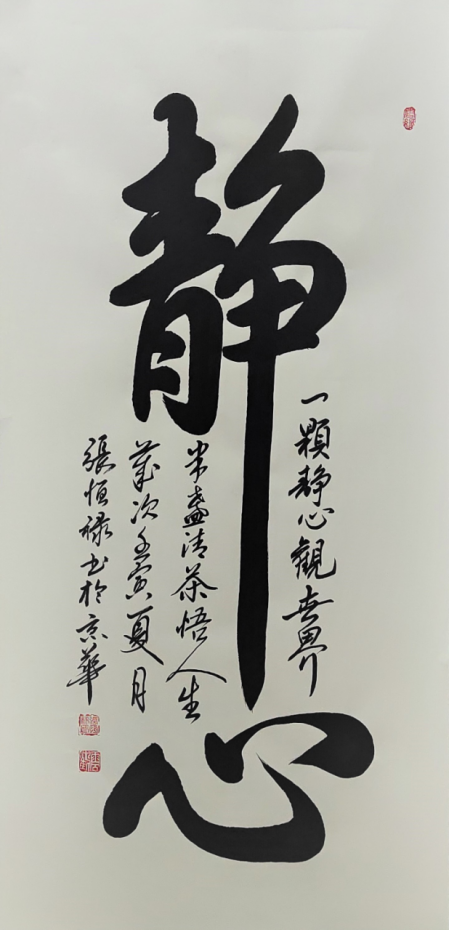 静心
一顆静心觀世界
半盏清茶悟人生
歲次壬寅夏月
張恒禄书於京華